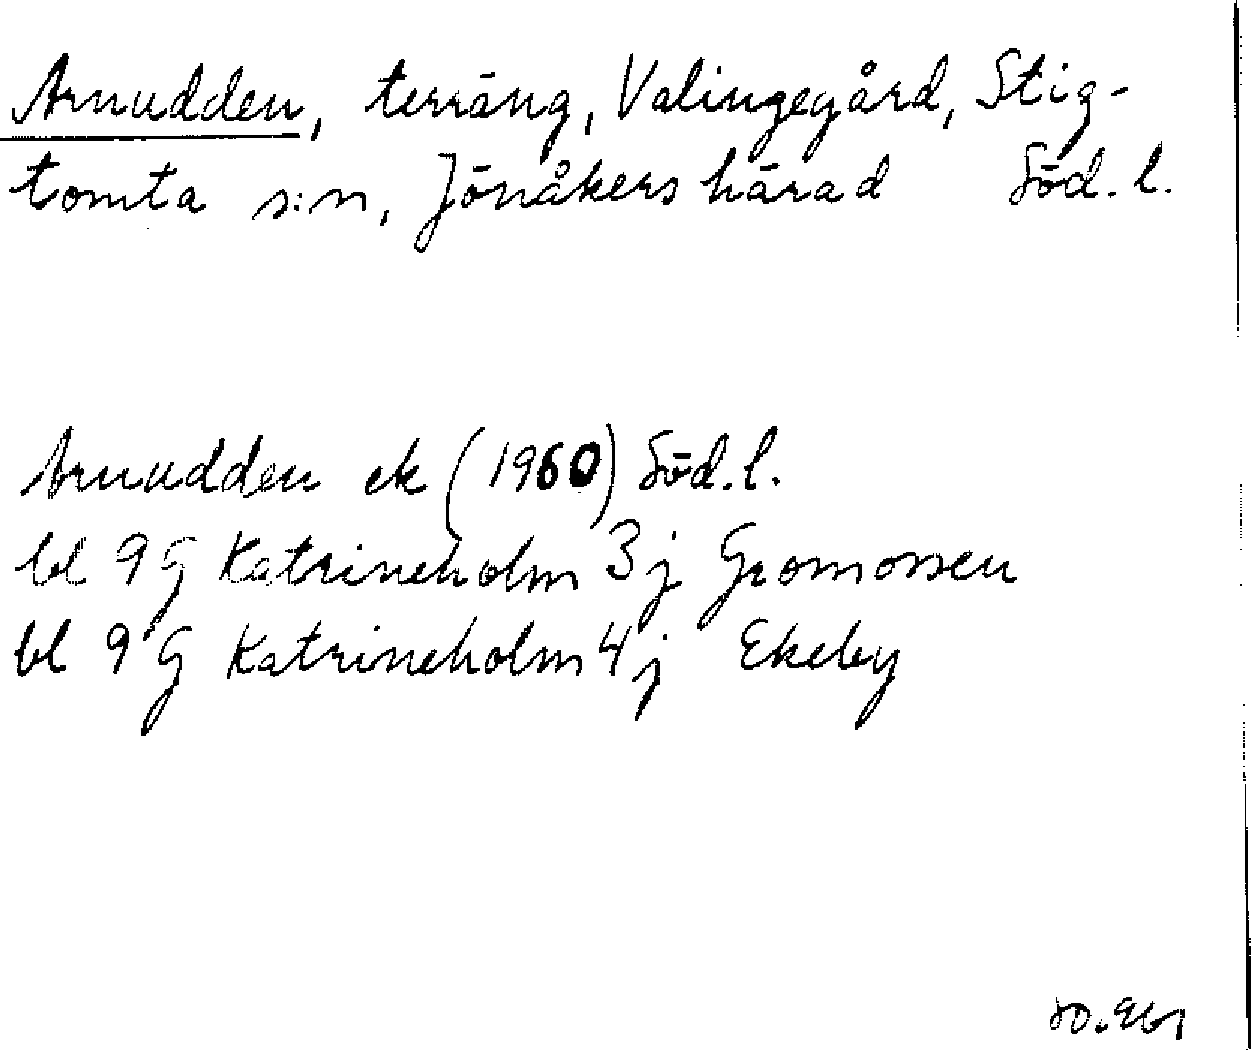 Arnudden, terräng, Valingegård, Stig-
tomta s:n, Jönåkers härad Söd. l.
Arnudden ek (1960) Söd. l.
bl 9 G Katrineholm 3j Gromossen
bl 9 G Katrineholm 4j Ekeby